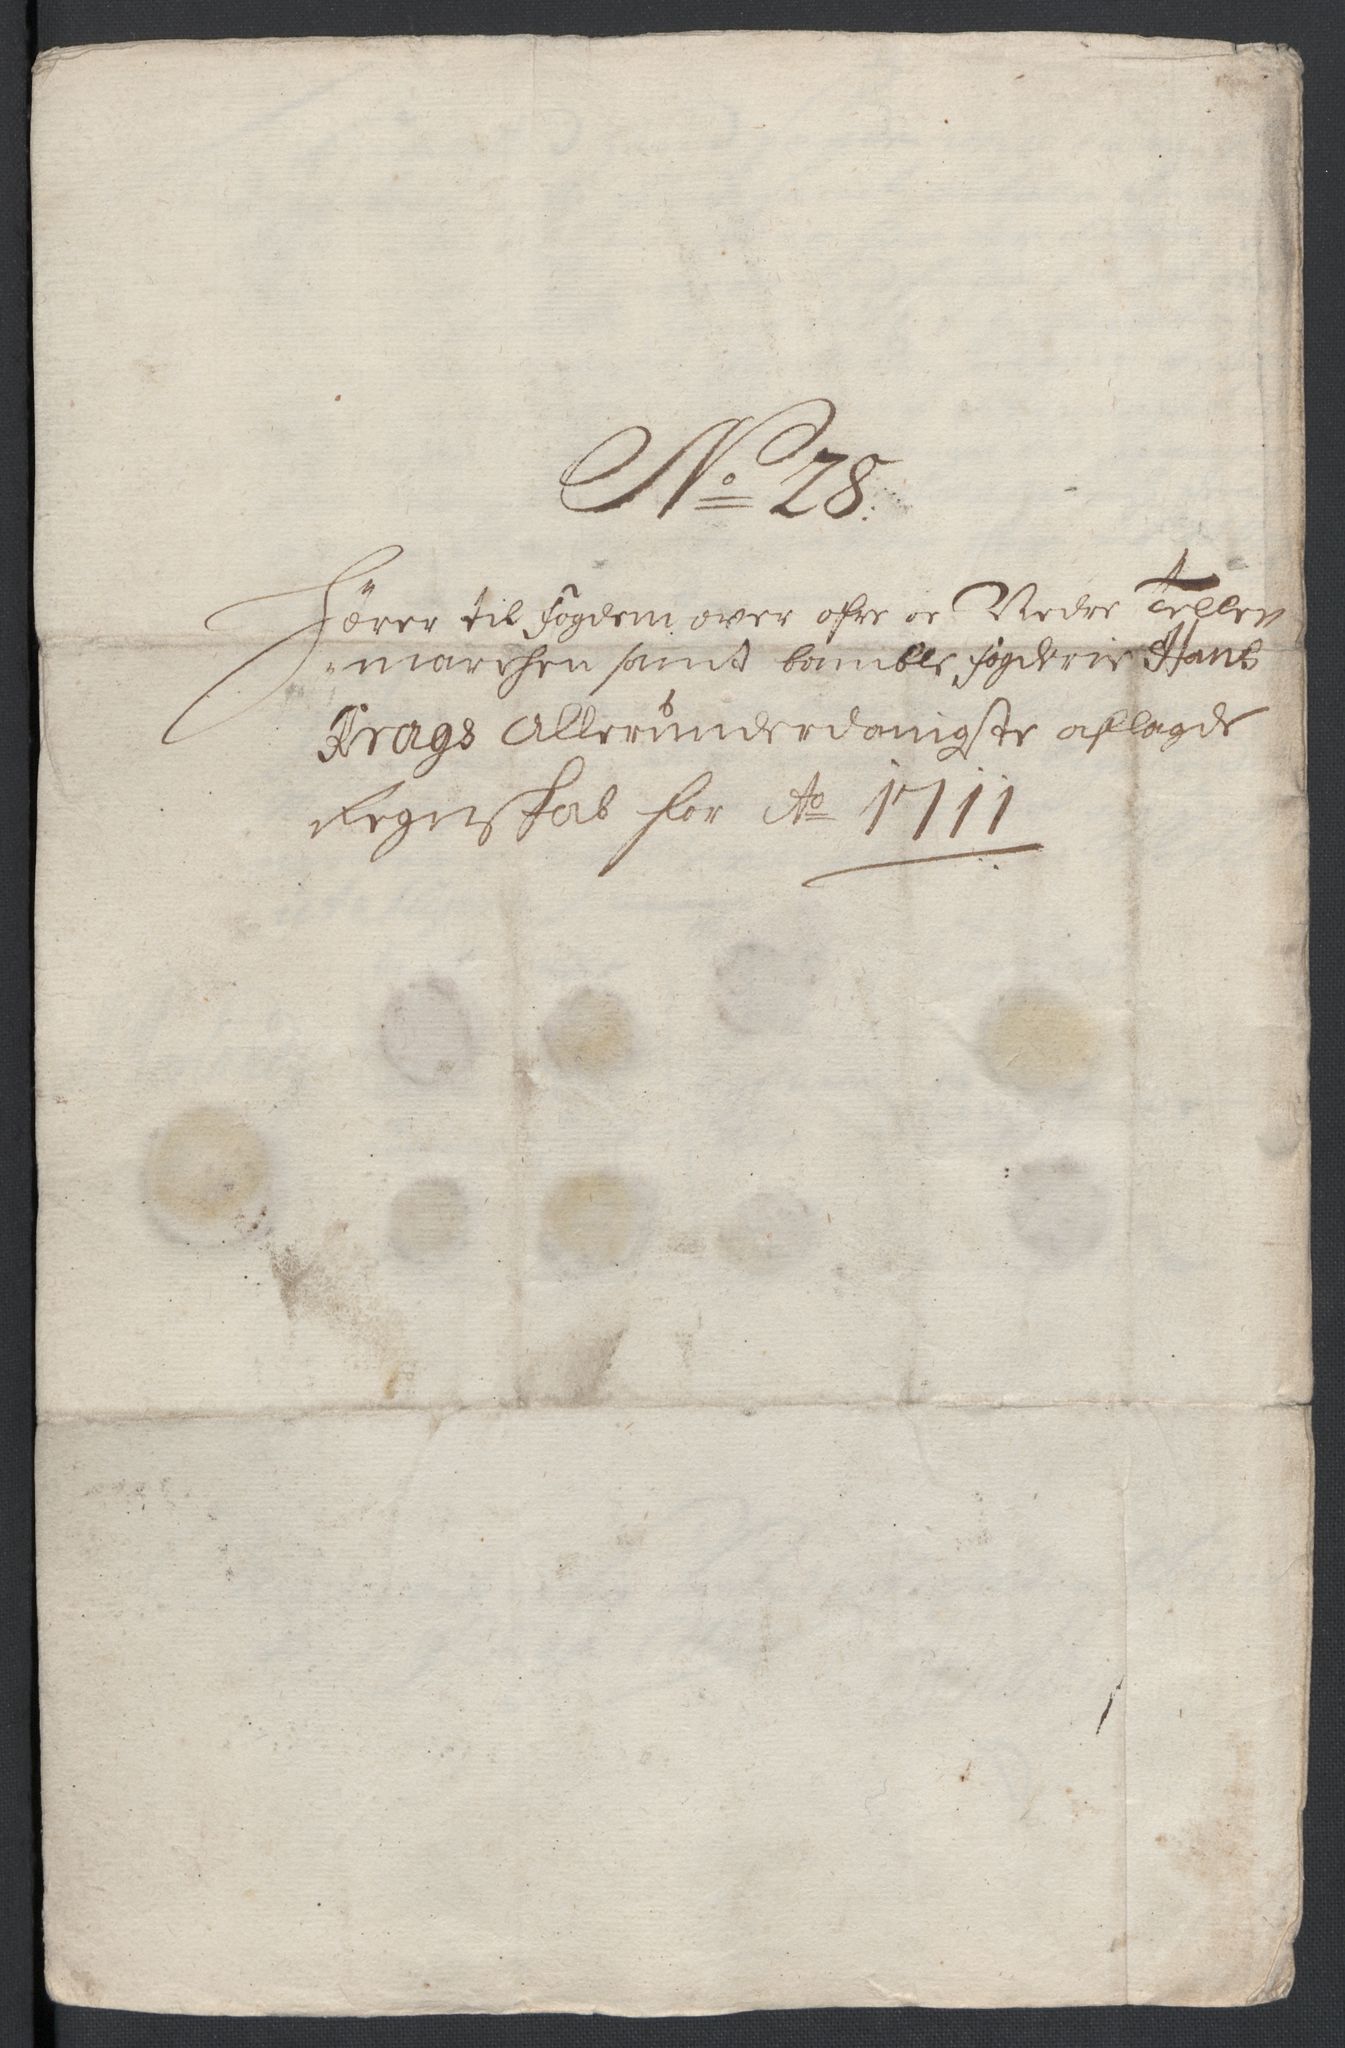 No 28.
Hörer til Fogden over øfre oc Nedre Tellen
-marchen samt bamble fogderie Hans
Krags Allerunderdanigste aflagde
Regenskab for Ao 1711